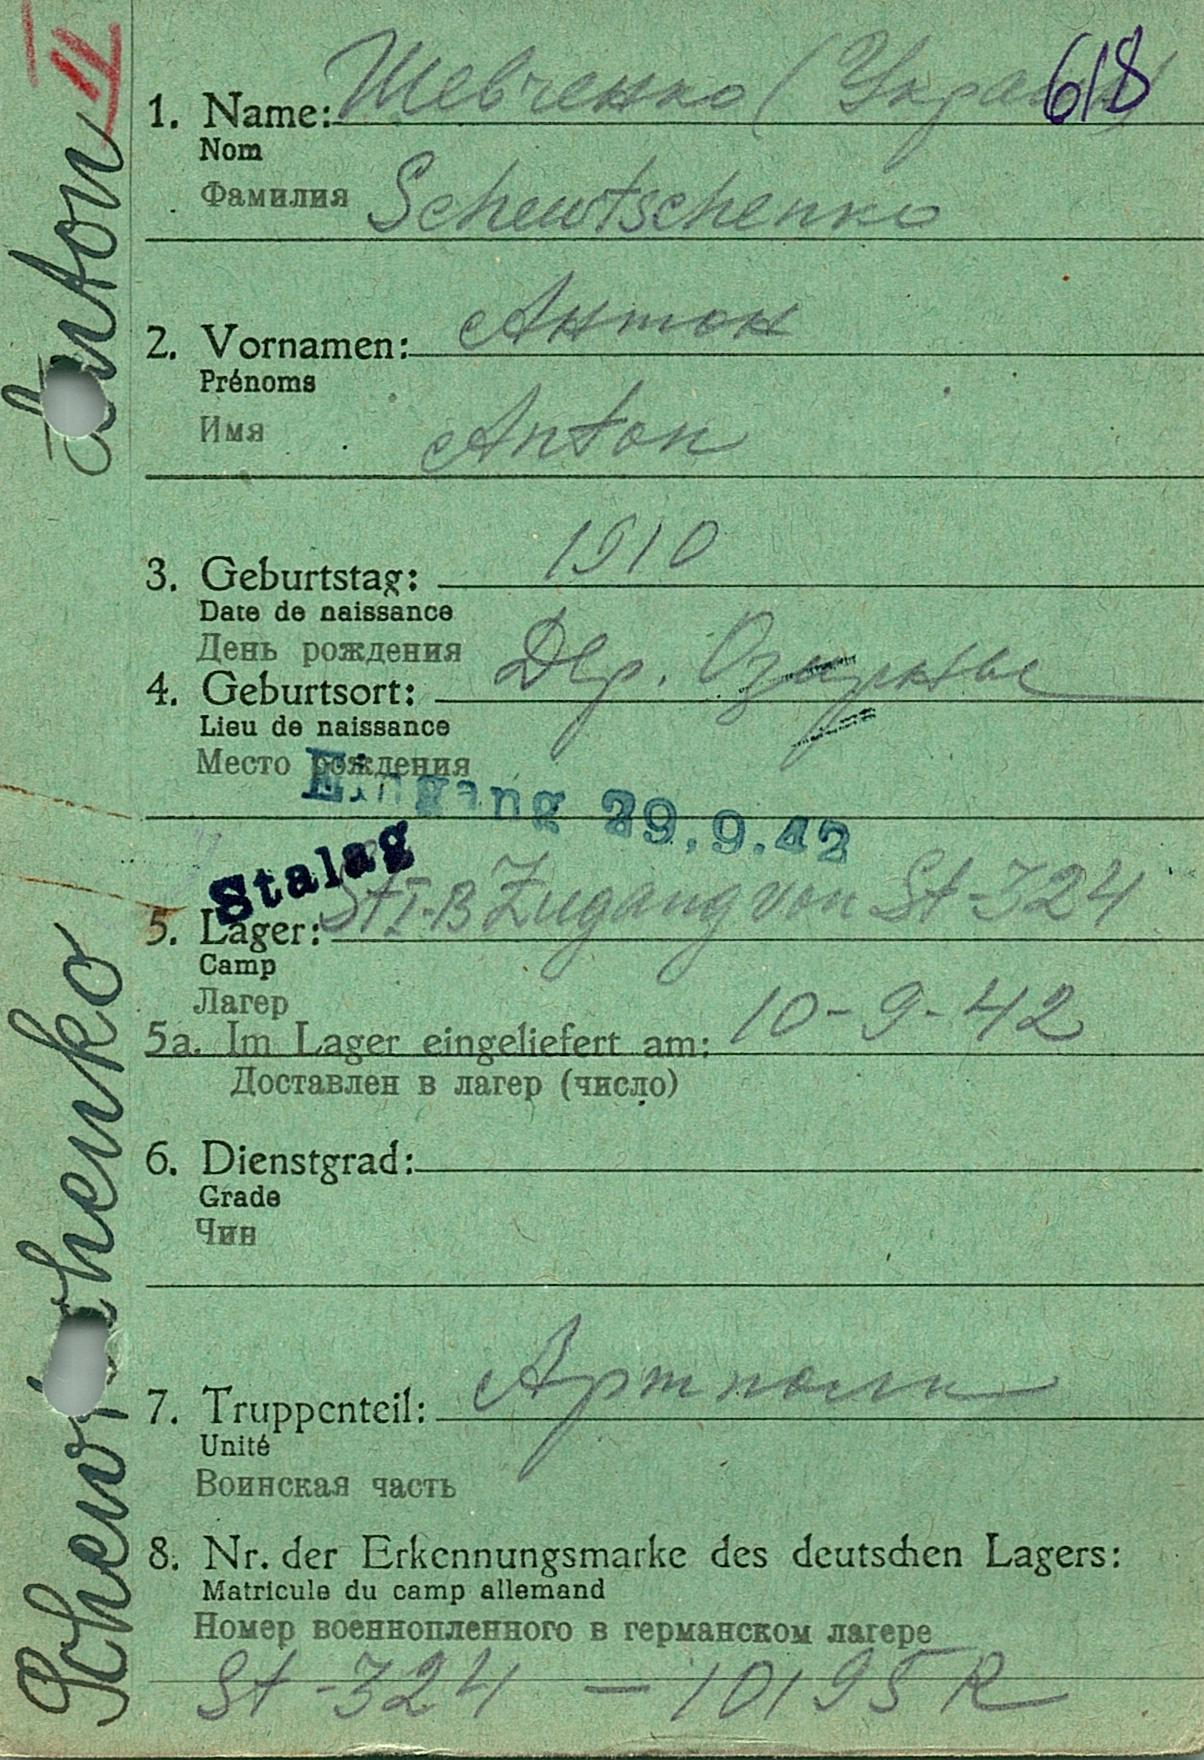 618
II
1. Name: Шевченко (Украин)
Nom
Фамилия Schewtschenko
2. Vornamen: Антон
Prénoms
Имя Anton
3. Geburtstag: 1910
Date de naissance
День рождения
4. Geburtsort: Дер.
Lieu de naissance
Место рождения
Eingang 29.9.42
Stalag
5. Lager: St I-B Zugang von St-324
Camp
Лагер
5a. Im Lager eingeliefert am: 10-9-42
Доставлен в лагер (число)
6. Dienstgrad:
Grade
Чин
7. Truppenteil: Артполк
Unité
Воинская часть
8. Nr. der Erkennungsmarke des deutschen Lagers:
Matricule du camp allemand
Номер военнопленного в германском лагере
St-324 — 10195 R
Schewtschenko Anton